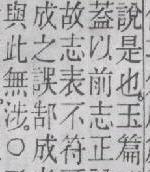 說是也。玉篇
蓋以前志正
故志表不符
成之誤郜成
與此無涉。○